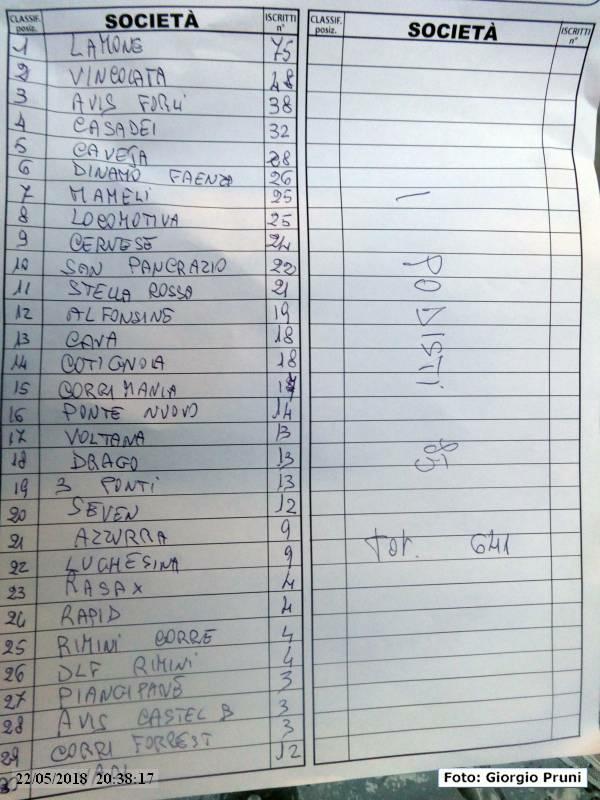 CLASSIF. posiz. SOCIETÀ ISCRITTI n°
1 LAMONE 75
2 VINCOLATA 48
3 AVIS FORLÌ 38
4 CASADEI 32
5 CAVEJA 28
6 DINAMO FAENZA 26
7 MAMELI 25
8 LOCOMOTIVA 25
9 CERVESE 24
10 SAN PANCRAZIO 22
11 STELLA ROSSA 21
12 ALFONSINE 19
13 CAVA 18
14 COTIGNOLA 18
15 CORRIMANIA
16 PONTE NUOVO 14
17 VOLTANA 13
18 DRAGO 13
19 3 PONTI 13
20 SEVEN 12
21 AZZURRA 9
22 LUGHESINA 9
23 RASAX 4
24 RAPID 4
25 RIMINI CORRE 4
26 DLF RIMINI 4
27 PIANGIPANE 3
28 AVIS CASTEL B 3
29 CORRI FORREST 3
30 12
CLASSIF. posiz. SOCIETÀ ISCRITTI n°
TOT. 641
22/05/2018 20:38:17
Foto: Giorgio Pruni